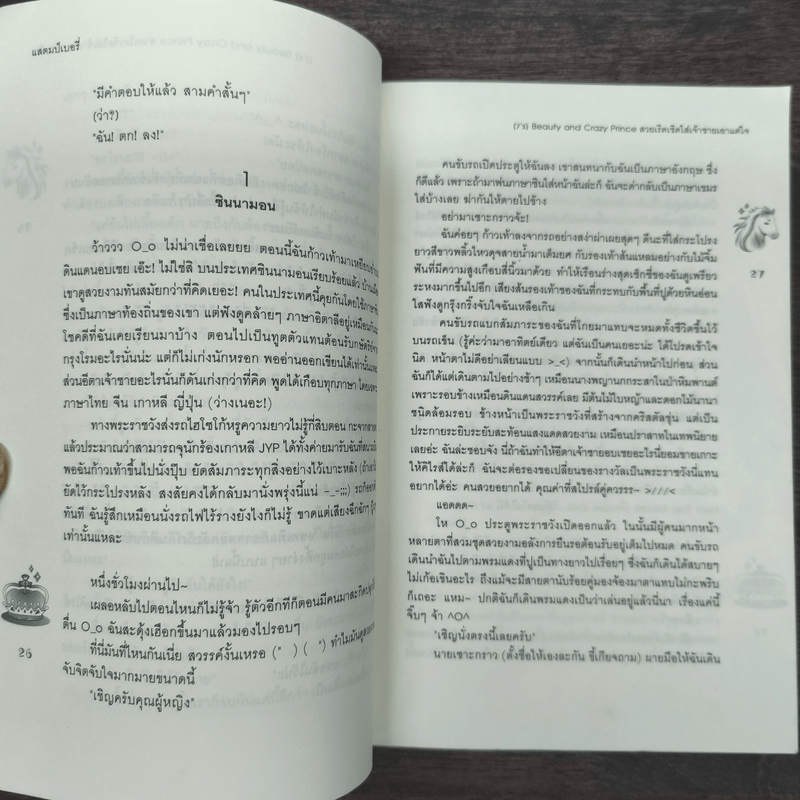 แสตมป์เบอรี่
"มีคำตอบให้แล้ว สามคำสั้นๆ"
(ว่า?)
"ฉัน! ตก! ลง!"
1
ซินนามอน
ว้าววว O_o ไม่น่าเชื่อเลยยย ตอนนี้ฉันก้าวเท้ามาเหยียบ
ดินแดนอบเชย เอ๊ะ! ไม่ใช่สิ บนประเทศซินนามอนเรียบร้อยแล้ว บ้านเมือง
เขาดูสวยงามทันสมัยกว่าที่คิดเยอะ! คนในประเทศนี้คุยกันโดยใช้ภาษา
ซึ่งเป็นภาษาท้องถิ่นของเขา แต่ฟังดูคล้ายๆ ภาษาอิตาลีอยู่เหมือนกัน
โชคดีที่ฉันเคยเรียนมาบ้าง ตอนไปเป็นทูตตัวแทนต้อนรับกษัตริย์
กรุงโรมอะไรนั่นน่ะ แต่ก็ไม่เก่งนักหรอก พออ่านออกเขียนได้เท่านั้น
ส่วนอีตาเจ้าชายอะไรนั่นก็ดันเก่งกว่าที่คิด พูดได้เกือบทุกภาษา
ภาษาไทย จีน เกาหลี ญี่ปุ่น (ว่างเนอะ!)
ทางพระราชวังส่งรถไฮโซโก้หรูความยาวไม่รู้กี่สิบตอน กะจาก
แล้วประมาณว่าสามารถจุนักร้องเกาหลี JYP ได้ทั้งค่ายมารับฉันที่สนามบิน
พอฉันก้าวเท้าขึ้นไปนั่งปุ๊บ ยัดสัมภาระทุกสิ่งอย่างไว้เบาะหลัง
ยัดไว้กระโปรงหลัง สงสัยคงได้กลับมานั่งพรุ่งนี้แน่ -_-;;;) รถก็ออก
ทันที ฉันรู้สึกเหมือนนั่งรถไฟไร้รางยังไงก็ไม่รู้ ขาดแต่เสียงฉึกฉักๆ
เท่านั้นแหละ
หนึ่งชั่วโมงผ่านไป~
เผลอหลับไปตอนไหนก็ไม่รู้จ้า รู้ตัวอีกทีก็ตอนมีคนมาสะกิดปลุก
ตื่น O_o ฉันสะดุ้งเฮือกขึ้นมาแล้วมองไปรอบๆ
ที่นี่มันที่ไหนกันเนี่ย สวรรค์งั้นเหรอ (* ) ( *) ทำไมมันดู
จับจิตจับใจมากมายขนาดนี้
"เชิญครับคุณผู้หญิง"
26
(7's) Beauty and Crazy Prince สวยเริดเชิดใส่เจ้าชายเอาแต่ใจ
คนขับรถเปิดประตูให้ฉันลง เขาสนทนากับฉันเป็นภาษาอังกฤษ ซึ่ง
ก็ดีแล้ว เพราะถ้ามาพ่นภาษาซินใส่หน้าฉันล่ะก็ ฉันจะด่ากลับเป็นภาษาเขมร
ใส่บ้างเลย ฆ่ากันให้ตายไปข้าง
อย่ามาเซาะกราวจ้ะ!
ฉันค่อยๆ ก้าวเท้าลงจากรถอย่างสง่าผ่าเผยสุดๆ ดีนะที่ใส่กระโปรง
ยาวสีขาวพลิ้วไหวดุจสายน้ำมาเต็มยศ กับรองเท้าส้นแหลมอย่างกับไม้จิ้ม
ฟันที่มีความสูงเกือบสี่นิ้วมาด้วย ทำให้เรือนร่างสุดเซ็กซี่ของฉันดูเพรียว
ระหงมากขึ้นไปอีก เสียงส้นรองเท้าของฉันที่กระทบกับพื้นที่ปูด้วยหินอ่อน
ใสฟังดูกรุ๊งกริ๊งจับใจฉันเหลือเกิน
คนขับรถแบกสัมภาระของฉันที่โกยมาแทบจะหมดทั้งชีวิตขึ้นไว้
บนรถเข็น (รู้ค่ะว่ามาอาทิตย์เดียว แต่ฉันเป็นคนเยอะน่ะ ได้โปรดเข้าใจ
นิด หน้าตาไม่ดีอย่าเลียนแบบ >_<) จากนั้นก็เดินนำหน้าไปก่อน ส่วน
ฉันก็ได้แต่เดินตามไปอย่างช้าๆ เหมือนนางพญานกกระสาในป่าหิมพานต์
เพราะรอบข้างเหมือนดินแดนสวรรค์เลย มีต้นไม้ใบหญ้าและดอกไม้นานา
ชนิดล้อมรอบ ข้างหน้าเป็นพระราชวังที่สร้างจากคริสตัลชุ่น แต่เป็น
ประกายระยิบระยับสะท้อนแสงแดดสวยงาม เหมือนปราสาทในเทพนิยาย
เลยอ่ะ ฉันล่ะชอบจัง นี่ถ้าฉันทำให้อีตาเจ้าชายอบเชยอะไรนี่ยอมขายเกาะ
ให้คิโรส์ได้ล่ะก็ ฉันจะต่อรองขอเปลี่ยนของรางวัลเป็นพระราชวังนี่แทน
อยากได้อ่ะ คนสวยอยากได้ คุณค่าที่สไปรส์คู่ควรรร~ >///<
แอดดด~
โห O_o ประตูพระราชวังเปิดออกแล้ว ในนั้นมีผู้คนมากหน้า
หลายตาที่สวมชุดสวยงามอลังการยืนรอต้อนรับอยู่เต็มไปหมด คนขับรถ
เดินนำฉันไปตามพรมแดงที่ปูเป็นทางยาวไปเรื่อยๆ ซึ่งฉันก็เดินได้สบายๆ
ไม่เก้อเขินอะไร ถึงแม้จะมีสายตานับร้อยคู่มองจ้องมาตาแทบไม่กะพริบ
ก็เถอะ แหม~ ปกติฉันก็เดินพรมแดงเป็นว่าเล่นอยู่แล้วนี่นา เรื่องแค่นี้
จิ๊บๆ จ้า ^O^
"เชิญนั่งตรงนี้เลยครับ"
นายเซาะกราว (ตั้งชื่อให้เองละกัน ขี้เกียจถาม) ผายมือให้ฉันเดิน
27